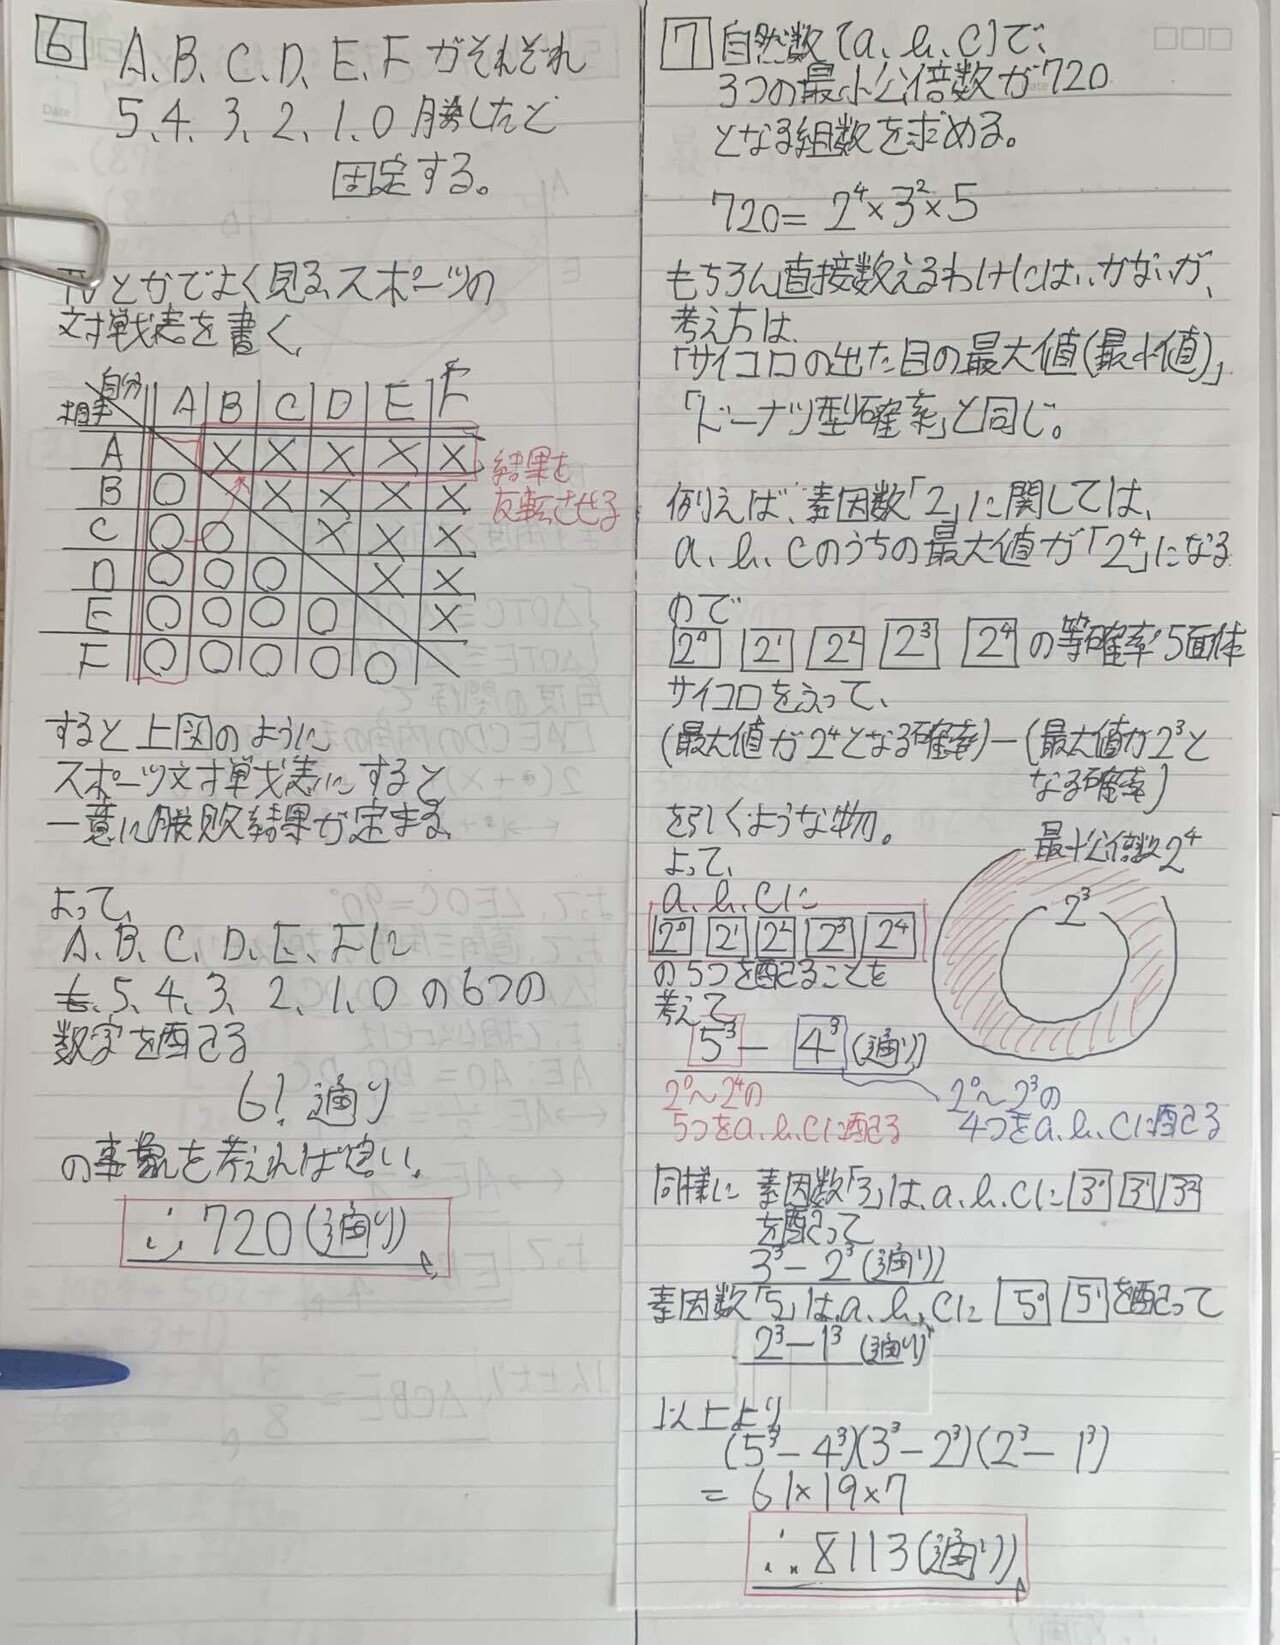 6
A、B、C、D、E、Fがそれぞれ
5、4、3、2、1、0勝したと
固定する。
TVとかでよく見るスポーツの
対戦表を書く、
自分 A B C D E F
相手
A × × × × ×
B ○ × × × ×
C ○ ○ × × ×
D ○ ○ ○ × ×
E ○ ○ ○ ○ ×
F ○ ○ ○ ○ ○
結果を
反転させる
すると上図のように
スポーツ対戦表にすると
一意に勝敗結果が定まる、
よって、
A、B、C、D、E、Fに
5、4、3、2、1、0の6つの
数字を配る
6! 通り
の事象を考えれば良い。
∴720(通り)
7
自然数(a、b、c)で、
3つの最小公倍数が720
となる組数を求める。
720=2⁴×3²×5
もちろん直接数えるわけにはいかないが、
考え方は、
「サイコロの出た目の最大値(最小値)」
「ドーナツ型確率」と同じ。
例えば、素因数「2」に関しては、
a、b、cのうちの最大値が「2⁴」になる
ので
2⁰ 2¹ 2² 2³ 2⁴ の等確率5面体
サイコロをふって、
(最大値が2⁴となる確率)−(最大値が2³と
なる確率)
を引くような物。
よって、
a、b、cに
2⁰ 2¹ 2² 2³ 2⁴
の5つを配ることを
考えて、
最小公倍数2⁴
2³
5³−4³(通り)
2⁰〜2⁴の
5つをa、b、cに配る
2⁰〜2³の
4つをa、b、cに配る
同様に 素因数「3」は、a、b、cに 3⁰ 3¹ 3²
を配って
3³−2³(通り)
素因数「5」は、a、b、cに 5⁰ 5¹ を配って
2³−1³(通り)
以上より
(5³−4³)(3³−2³)(2³−1³)
=61×19×7
∴8113(通り)